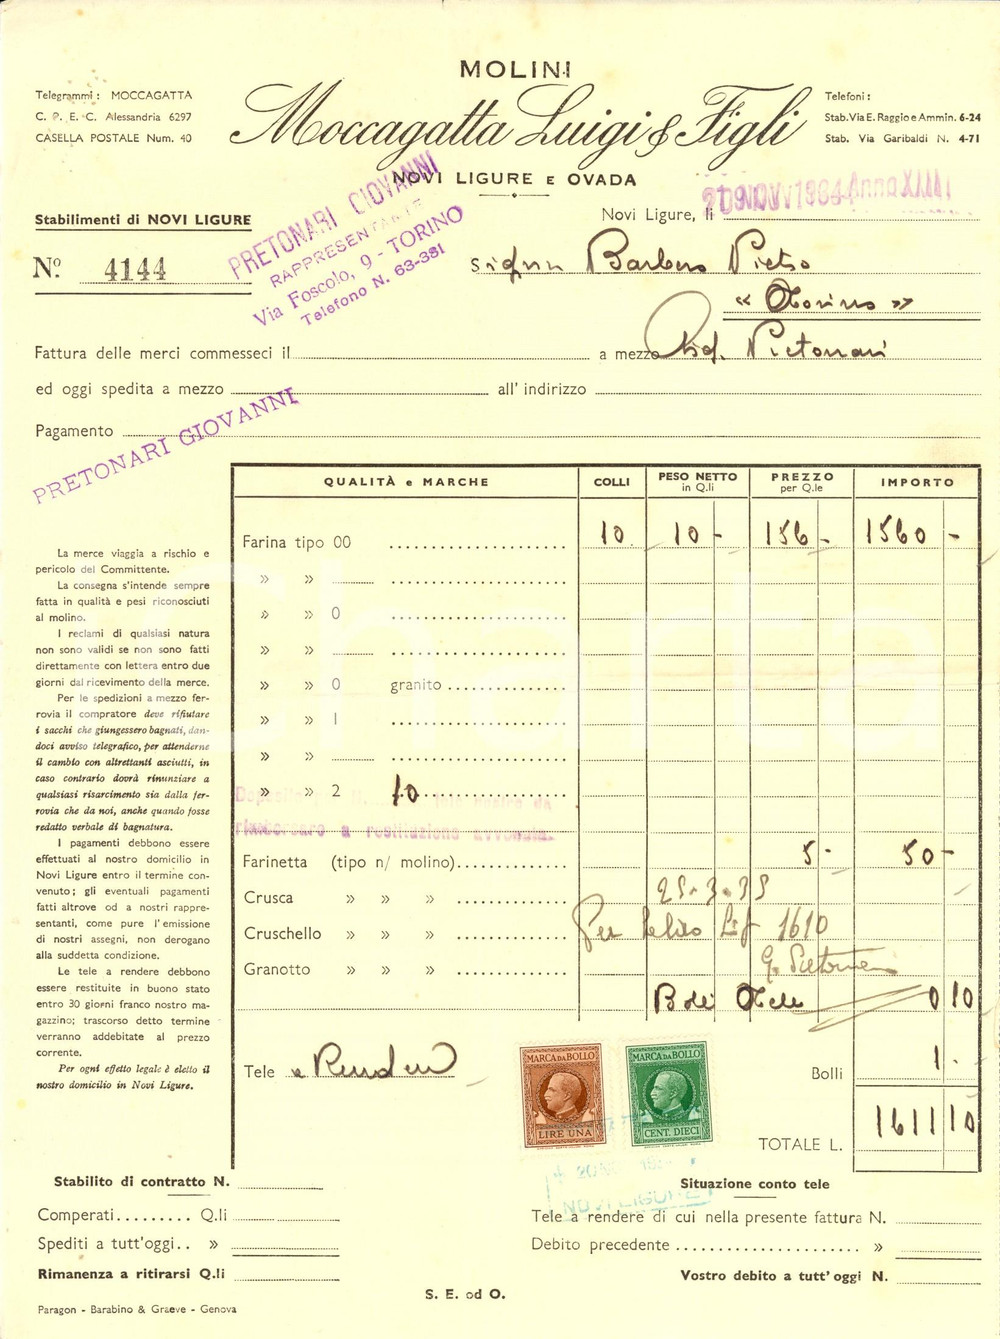 MOLINI
Moccagatta Luigi & Figli
NOVI LIGURE E OVADA
Telegrammi: MOCCAGATTA
C. P. E. C. Alessandria 6297
CASELLA POSTALE Num. 40
Telefoni:
Stab. Via E. Raggio e Ammin. 6-24
Stab. Via Garibaldi N. 4-71
Stabilimenti di NOVI LIGURE
No. 4144
PRETONARI GIOVANNI
RAPPRESENTANTE
Via Foscolo, 9 - TORINO
Telefono N. 63-381
Novi Ligure, li
Signor Barbero Pietro
« Torino »
Fattura delle merci commesseci il
a mezzo Sig. Pretonari
ed oggi spedita a mezzo
all' indirizzo
Pagamento
PRETONARI GIOVANNI
QUALITÀ e MARCHE
COLLI
PESO NETTO in Q.li
PREZZO per Q.le
IMPORTO
Farina tipo 00 10 10 - 156 - 1560 -
» »
» » 0
» »
» » 0 granito
» » 1
» »
» » 2 10
rimborsare a restituzione avvenuta.
Farinetta (tipo n/ molino) 5- 50-
Crusca » » » 25-3-35
Cruschello » » » Per saldo Lit 1610
Granotto » » » G. Pretonari
Boli Tele 0 10
Tele a Rendere
MARCA DA BOLLO
LIRE UNA
MARCA DA BOLLO
CENT. DIECI
NOVI LIGURE
Bolli 1 -
TOTALE L. 1611 10
La merce viaggia a rischio e
pericolo del Committente.
La consegna s'intende sempre
fatta in qualità e pesi riconosciuti
al molino.
I reclami di qualsiasi natura
non sono validi se non sono fatti
direttamente con lettera entro due
giorni dal ricevimento della merce.
Per le spedizioni a mezzo fer-
rovia il compratore deve rifiutare
i sacchi che giungessero bagnati, dan-
doci avviso telegrafico, per attenderne
il cambio con altrettanti asciutti, in
caso contrario dovrà rinunziare a
qualsiasi risarcimento sia dalla fer-
rovia che da noi, anche quando fosse
redatto verbale di bagnatura.
I pagamenti debbono essere
effettuati al nostro domicilio in
Novi Ligure entro il termine con-
venuto; gli eventuali pagamenti
fatti altrove od a nostri rappre-
sentanti, come pure l'emissione
di nostri assegni, non derogano
alla suddetta condizione.
Le tele a rendere debbono
essere restituite in buono stato
entro 30 giorni franco nostro ma-
gazzino; trascorso detto termine
verranno addebitate al prezzo
corrente.
Per ogni effetto legale è eletto il
nostro domicilio in Novi Ligure.
Stabilito di contratto N.
Comperati......... Q.li
Spediti a tutt'oggi.. »
Rimanenza a ritirarsi Q.li
Situazione conto tele
Tele a rendere di cui nella presente fattura N.
Debito precedente »
Vostro debito a tutt'oggi N.
S. E. od O.
Paragon - Barabino & Graeve - Genova